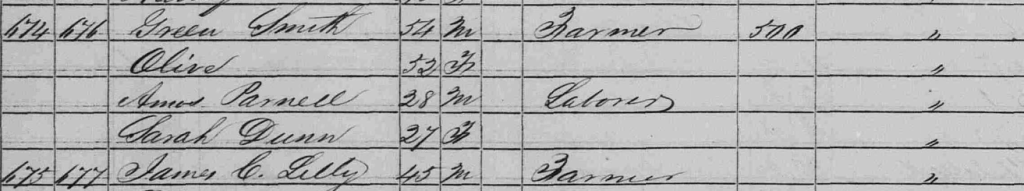 674 676 Green Smith 54 M Farmer 500 "
Olive 52 F "
Amos Parnell 28 M Laborer "
Sarah Dunn 27 F "
675 677 James C. Lilly 45 M Farmer "